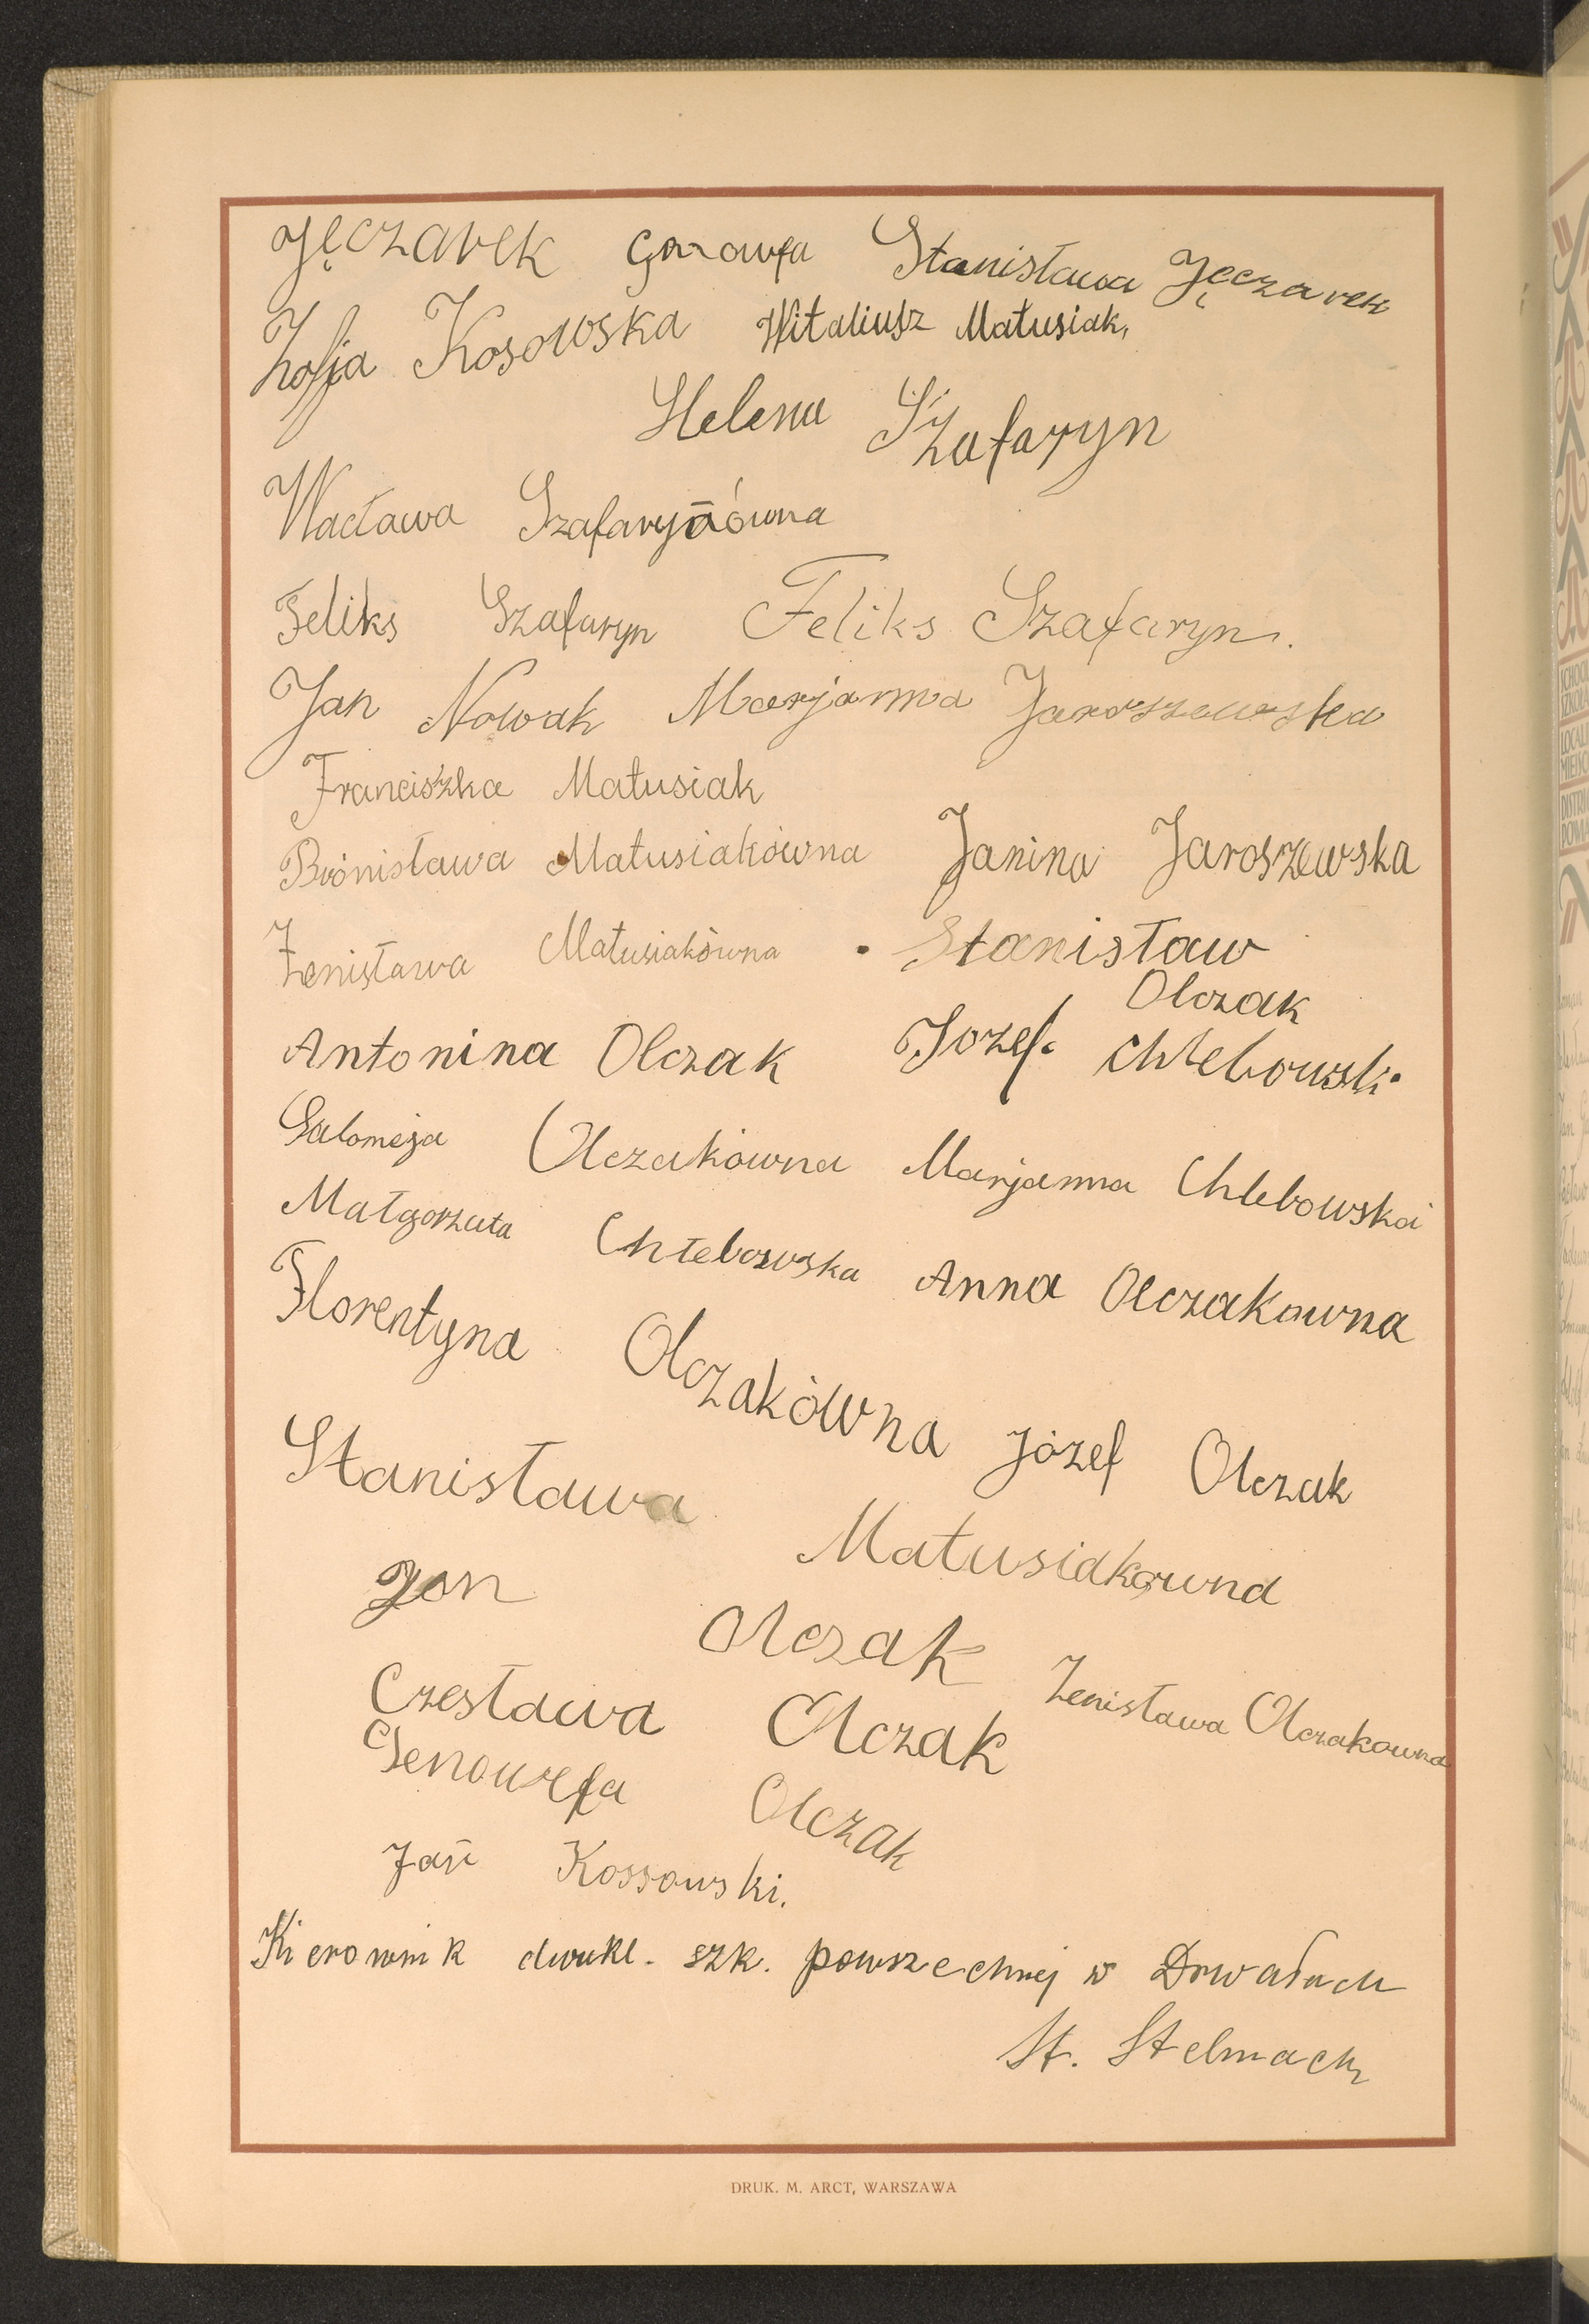 Jęczarek Gnowefa Stanisława Jęczarek
Zofja Kosowska Witaliusz Matusiak,
Helena Szafaryn
Wacława Szafarynówna
Feliks Szafaryn Feliks Szafaryn.
Jan Nowak Marjanna Jaroszewska
Franciszka Matusiak
Brónisława Matusiakówna Janina Jaroszewska
Zenisława Matusiakówna Stanisław
Olczak
Antonina Olczak Jozef. Chlebowski
Salomeja Olczakówna Marjanna Chlebowska
Małgorzata Chłebowska Anna Olczakowna
Florentyna Olczakówna Józef Olczak
Stanisława Matusiakowna
Jan Olczak
Czesława Olczak Zenisława Olczakowna
Genowefa Olczak
Jan Kossowski.
Kierownik dwukl. szk. powszechnej w Drwałach
St. Stelmach
DRUK. M. ARCT, WARSZAWA